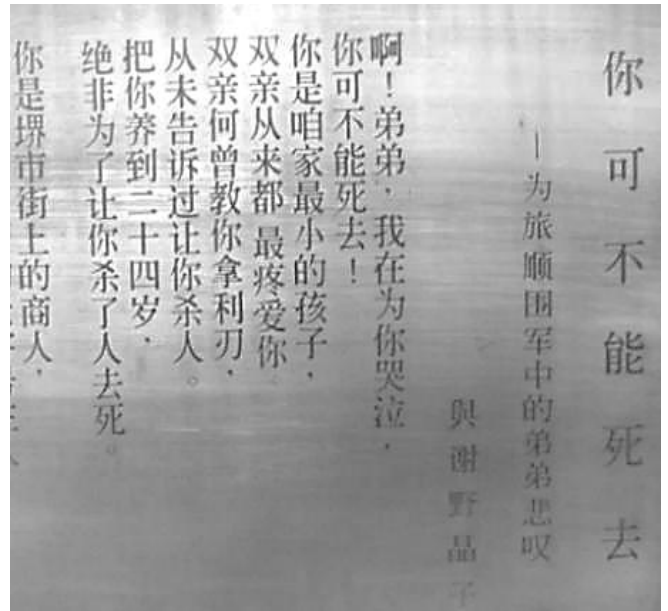 你可不能死去
—为旅顺围军中的弟弟悲叹
與谢野晶子
啊！弟弟，我在为你哭泣，
你可不能死去！
你是咱家最小的孩子，
双亲从来都最疼爱你
双亲何曾教你拿利刃，
从未告诉过让你杀人。
把你养到二十四岁，
绝非为了让你杀了人去死。
你是堺市街上的商人，